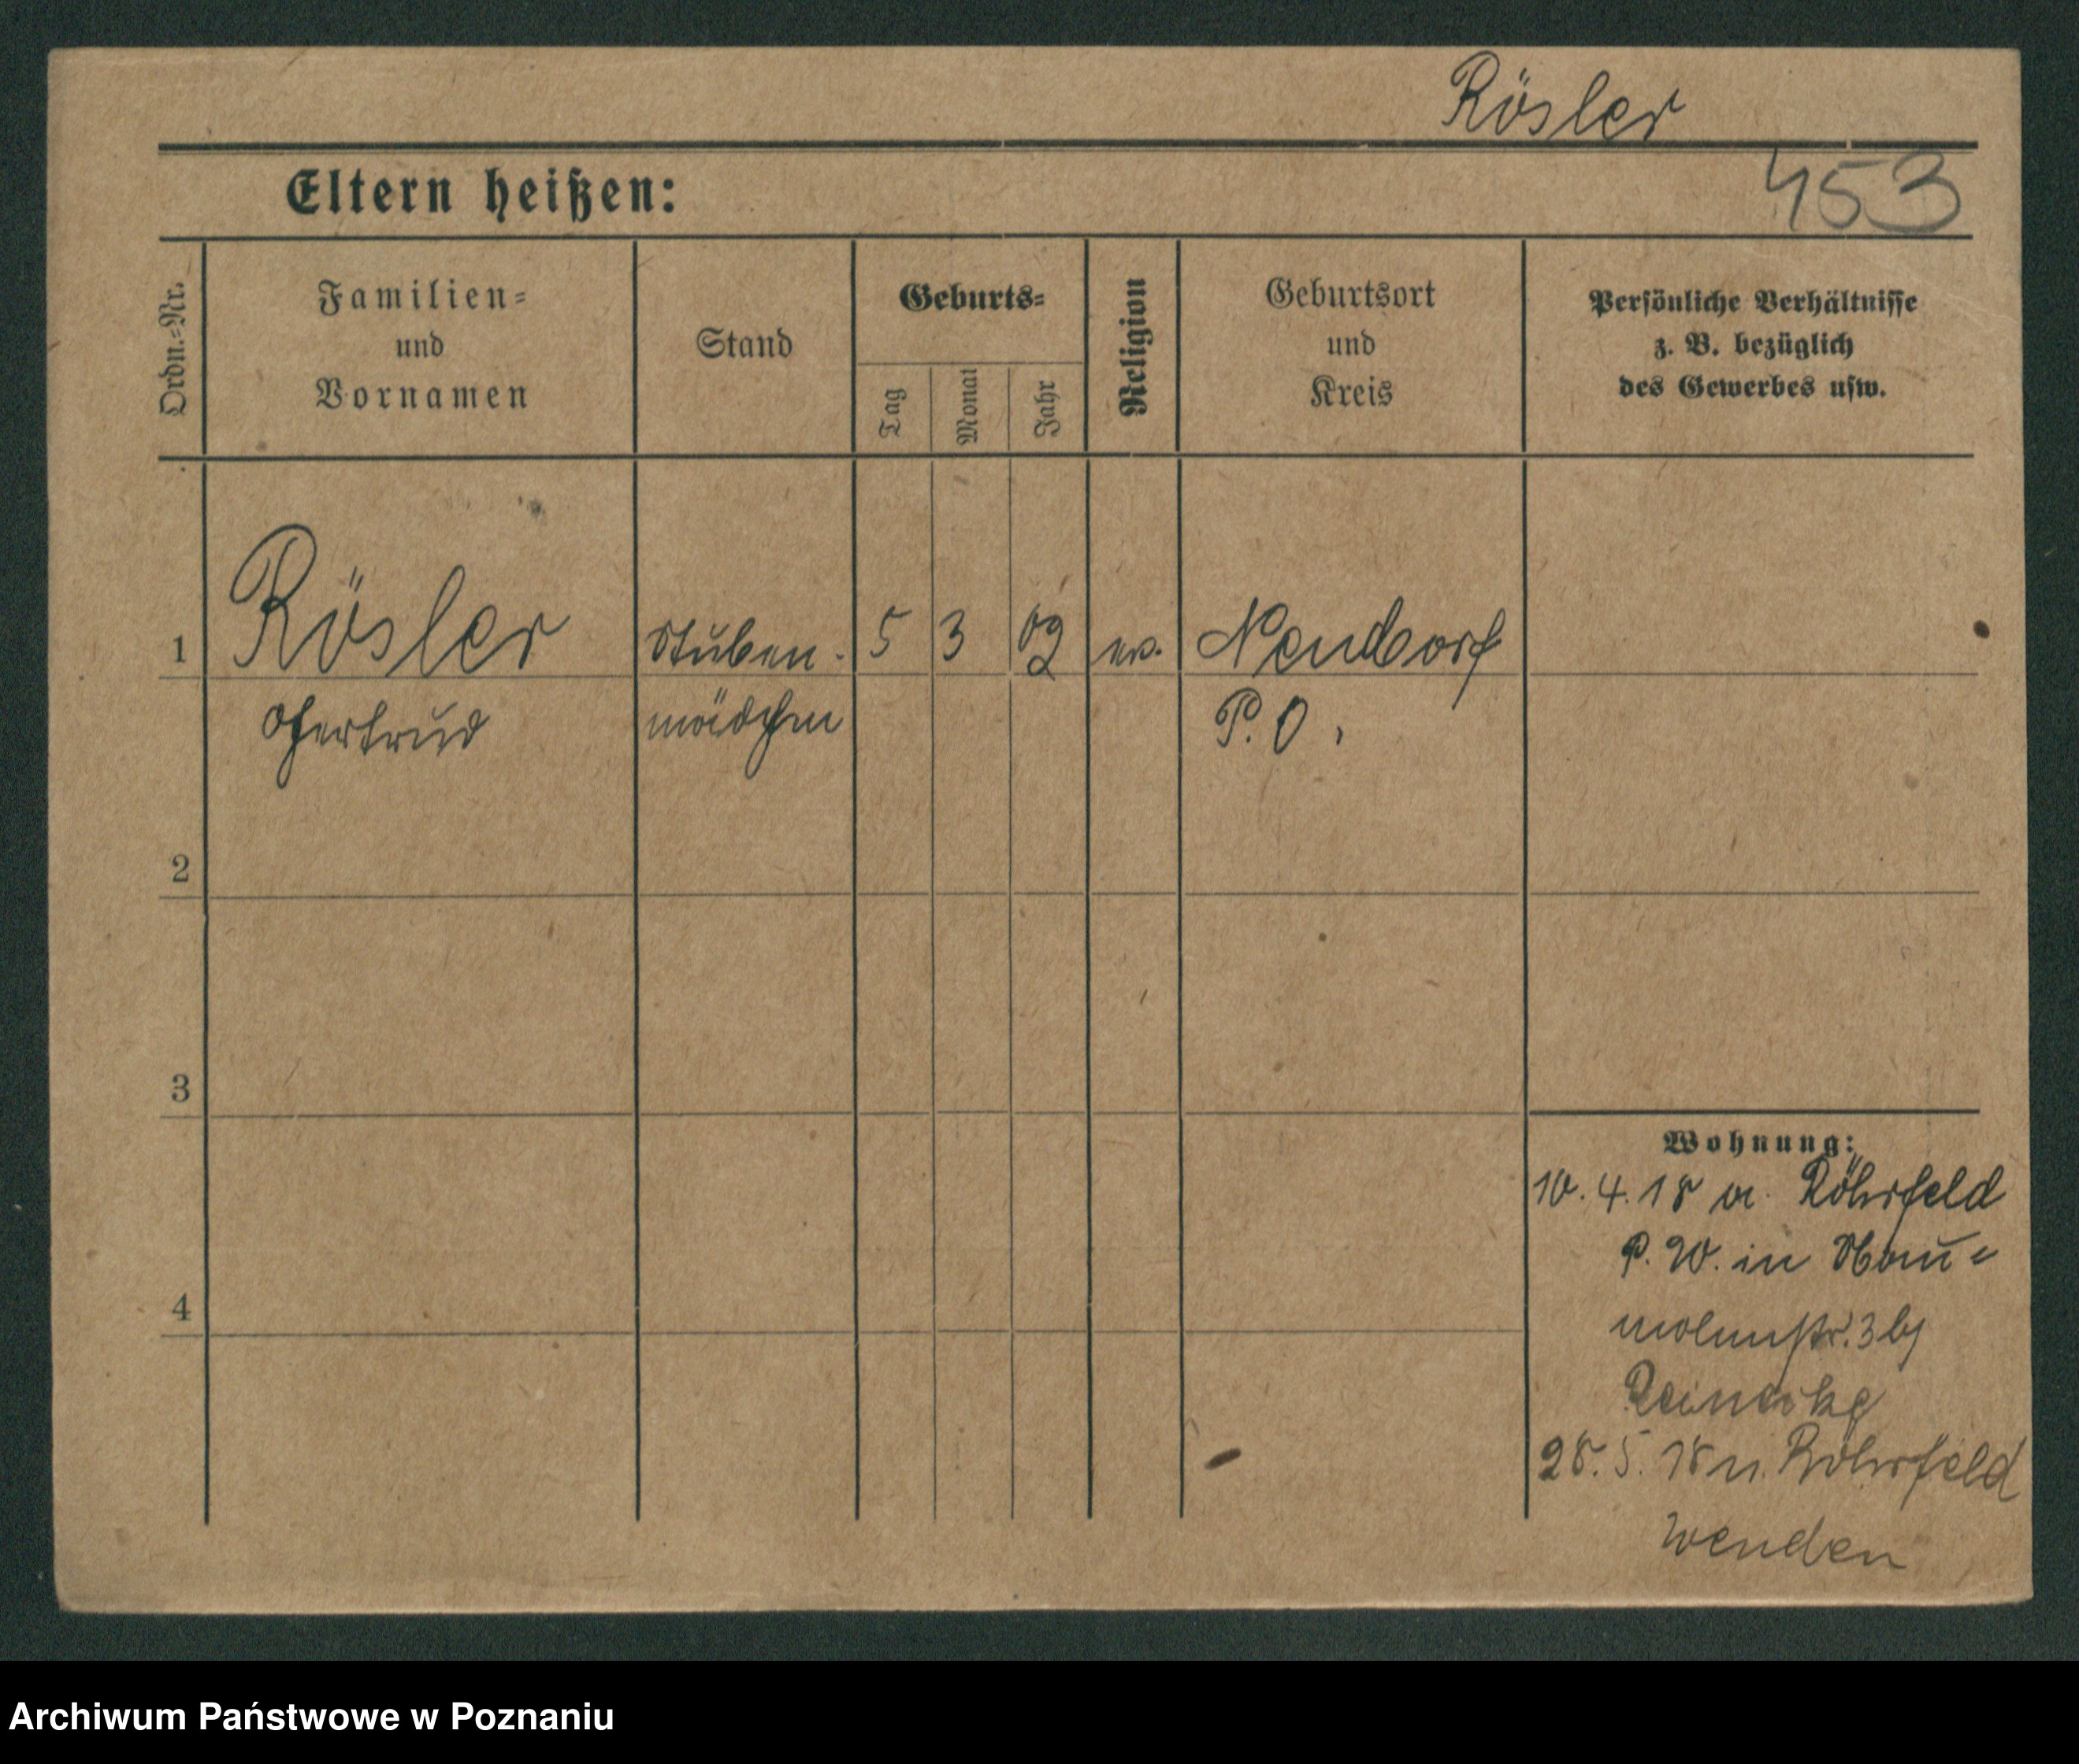 Rösler
453
Eltern heißen:
Ordn.=Nr.
Familien=
und
Vornamen
Stand
Geburts=
Tag
Monat
Jahr
Religion
Geburtsort
und
Kreis
Persönliche Verhältnisse
z. B. bezüglich
des Gewerbes usw.
1 Rösler Stuben- 5 3 02 ev. Neudorf
Gertrud mädchen P. O.
2
3
4
Wohnung:
10. 4. 18 a. Röhrfeld
P. W. in Nau=
mannstr. 3 b/
28. 5. 18 n. Röhrfeld
wenden
Archiwum Państwowe w Poznaniu